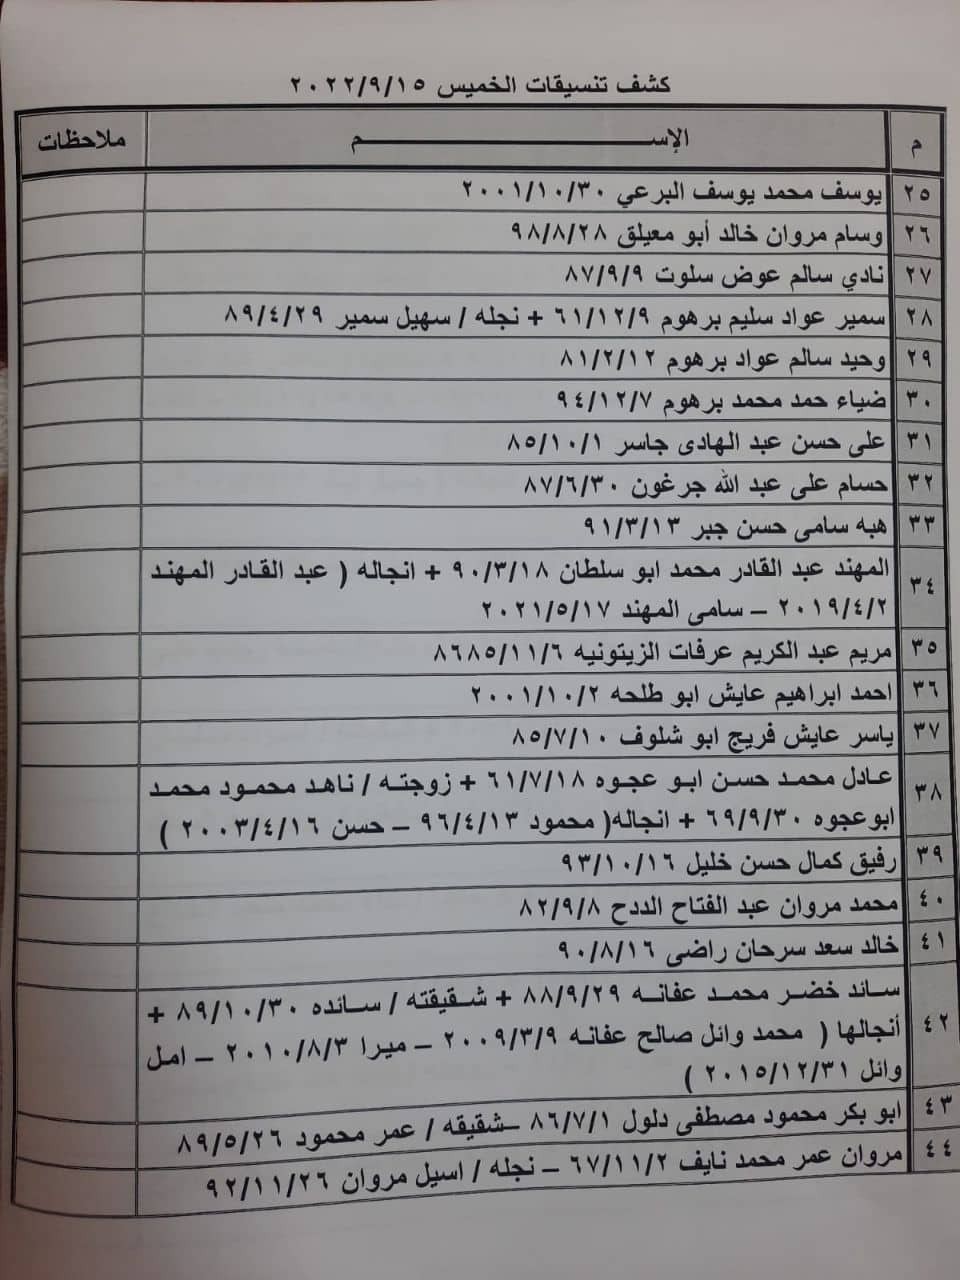 كشف تنسيقات الخميس ٢٠٢٢/٩/١٥
م الإســـــــــم ملاحظات
٢٥ يوسف محمد يوسف البرعي ٢٠٠١/١٠/٣٠
٢٦ وسام مروان خالد أبو معيلق ٩٨/٨/٢٨
٢٧ نادي سالم عوض سلوت ٨٧/٩/٩
٢٨ سمير عواد سليم برهوم ٦١/١٢/٩ + نجله / سهيل سمير ٨٩/٤/٢٩
٢٩ وحيد سالم عواد برهوم ٨١/٢/١٢
٣٠ ضياء حمد محمد برهوم ٩٤/١٢/٧
٣١ على حسن عبد الهادى جاسر ٨٥/١٠/١
٣٢ حسام على عبد الله جرغون ٨٧/٦/٣٠
٣٣ هبه سامى حسن جبر ٩١/٣/١٣
٣٤ المهند عبد القادر محمد ابو سلطان ٩٠/٣/١٨ + انجاله ( عبد القادر المهند
٢٠١٩/٤/٢ – سامى المهند ٢٠٢١/٥/١٧
٣٥ مريم عبد الكريم عرفات الزيتونيه ٨٦٨٥/١١/٦
٣٦ احمد ابراهيم عايش ابو طلحه ٢٠٠١/١٠/٢
٣٧ ياسر عايش فريج ابو شلوف ٨٥/٧/١٠
٣٨ عادل محمد حسن ابو عجوه ٦١/٧/١٨ + زوجته / ناهد محمود محمد
ابوعجوه ٦٩/٩/٣٠ + انجاله( محمود ٩٦/٤/١٣ – حسن ٢٠٠٣/٤/١٦ )
٣٩ رفيق كمال حسن خليل ٩٣/١٠/١٦
٤٠ محمد مروان عبد الفتاح الددح ٨٢/٩/٨
٤١ خالد سعد سرحان راضى ٩٠/٨/١٦
٤٢ سائد خضر محمد عفانه ٨٨/٩/٢٩ + شقيقته / سائده ٨٩/١٠/٣٠ +
أنجالها ( محمد وائل صالح عفانه ٢٠٠٩/٣/٩ – ميرا ٢٠١٠/٨/٣ – امل
وائل ٢٠١٥/١٢/٣١ )
٤٣ ابو بكر محمود مصطفى دلول ٨٦/٧/١ –شقيقه / عمر محمود ٨٩/٥/٢٦
٤٤ مروان عمر محمد نايف ٦٧/١١/٢ – نجله / اسيل مروان ٩٢/١١/٢٦